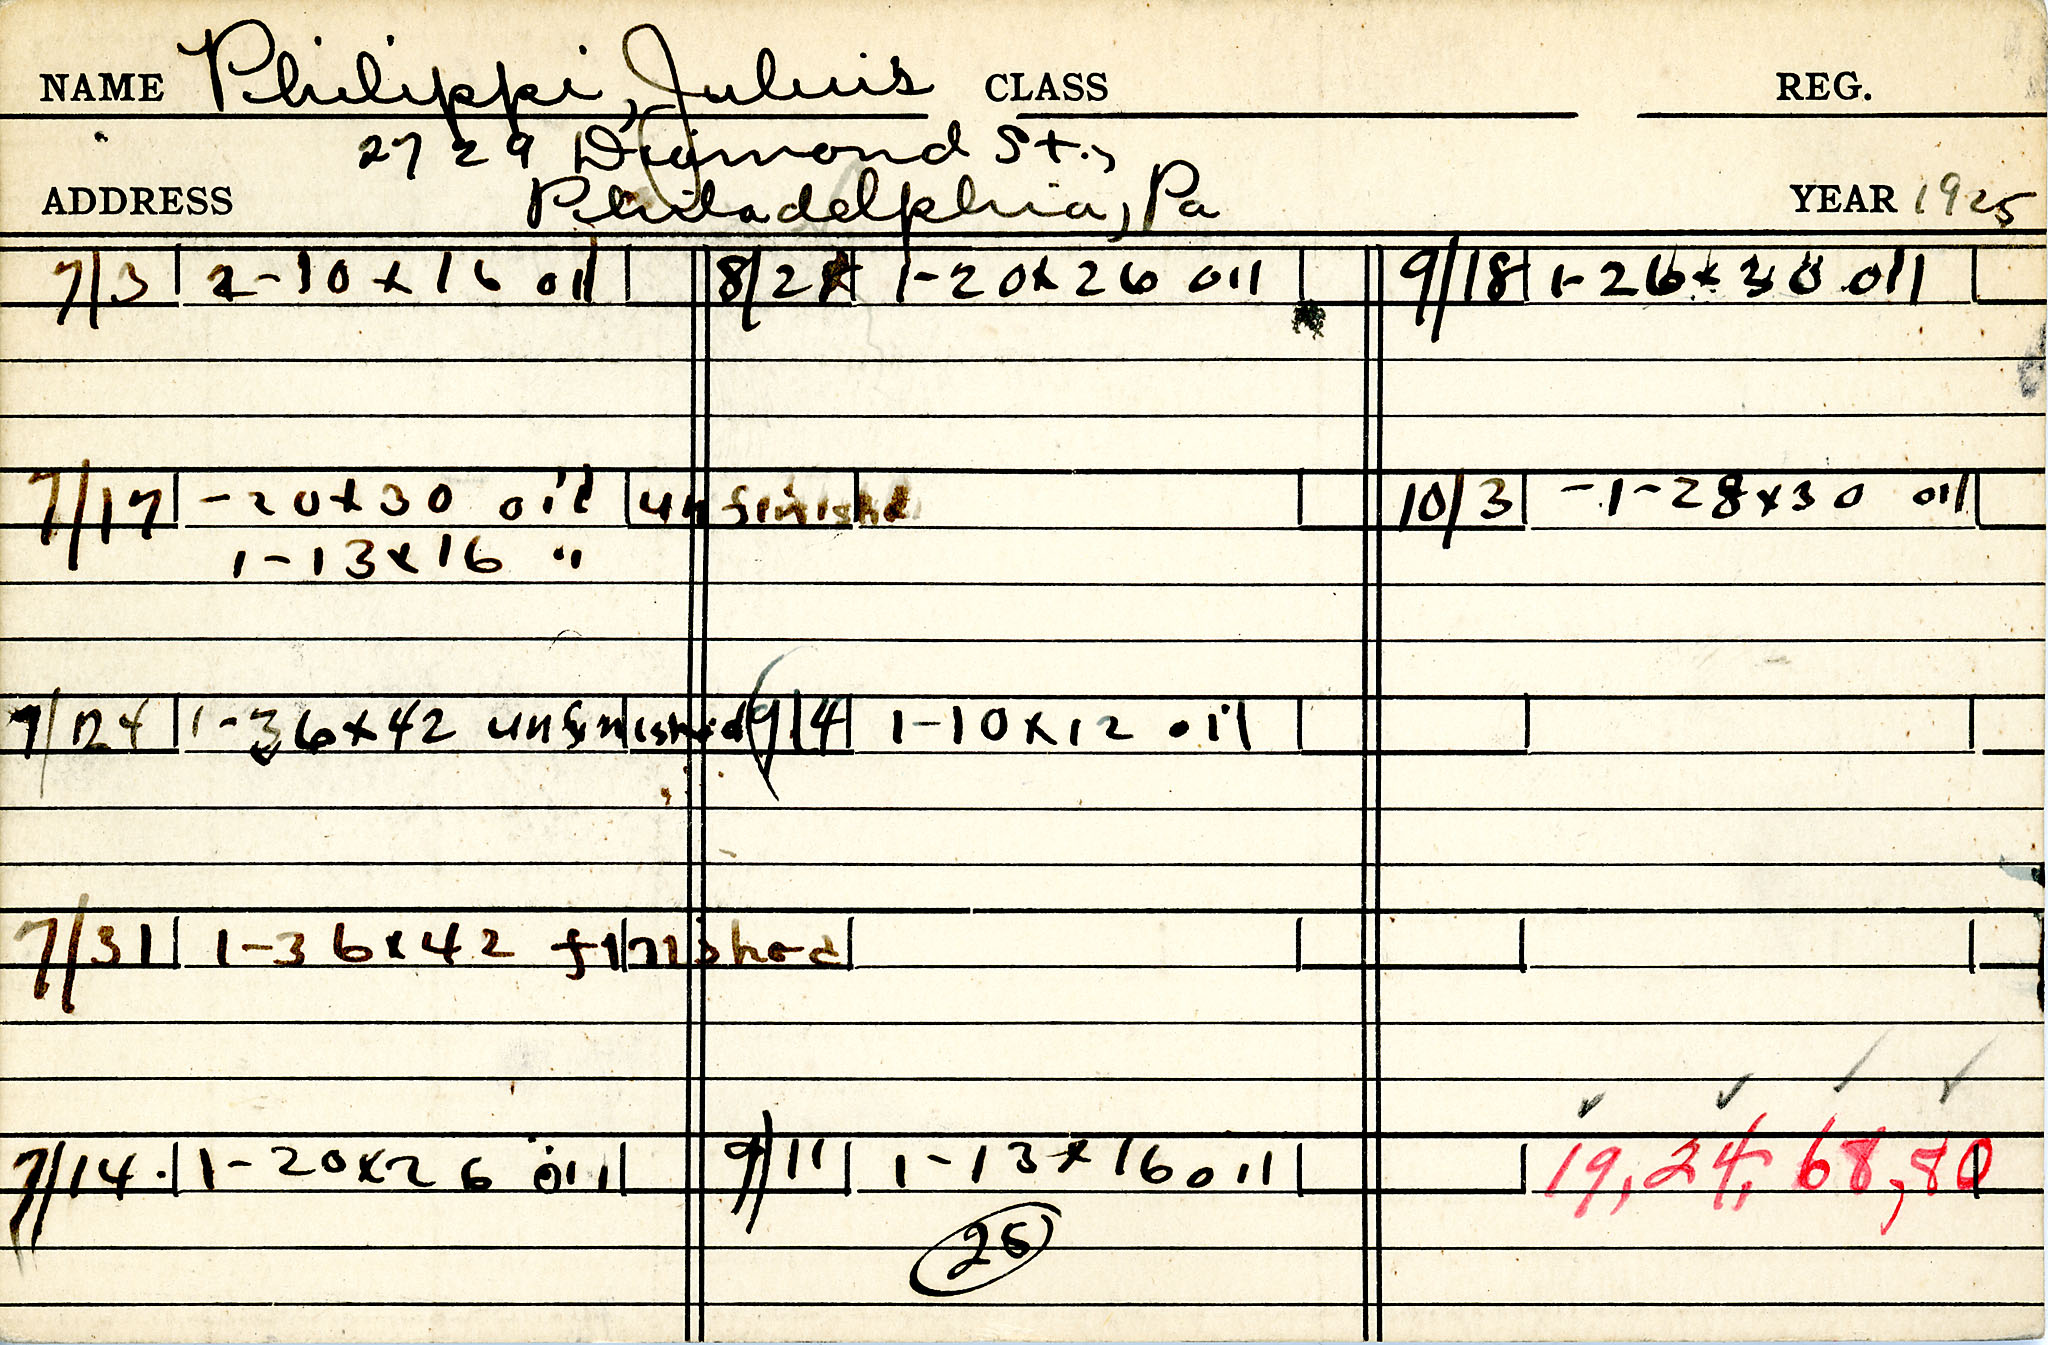 NAME Philippi, Julius CLASS REG.
2729 Diamond St.,
ADDRESS Philadelphia, Pa YEAR 1925
7/3 2-10x16 oil
7/17 -20x30 oil unfinished
1-13x16 "
7/24 1-36x42 unfinished
7/31 1-36x42 finished
7/14. 1-20x26 oil
8/28 1-20x26 oil
9/4 1-10x12 oil
9/11 1-13x16 oil
25
9/18 1-26x30 oil
10/3 -1-28x30 oil
19, 24, 68, 80